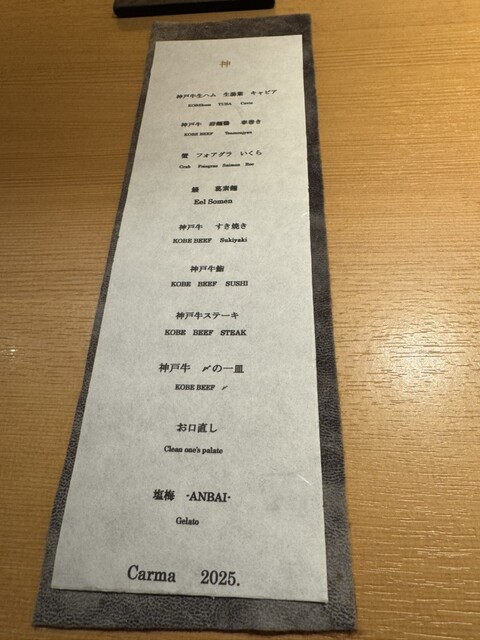 神
神戸牛生ハム 生湯葉 キャビア
KOBEham YUBA Cavia
神戸牛 春巻き
KOBE BEEF
蟹 フォアグラ いくら
Crab Foiegras Salmon Roe
鰻 葛素麺
Eel Somen
神戸牛 すき焼き
KOBE BEEF Sukiyaki
神戸牛鮨
KOBE BEEF SUSHI
神戸牛ステーキ
KOBE BEEF STEAK
神戸牛 〆の一皿
KOBE BEEF 〆
お口直し
Clean one's palate
塩梅 -ANBAI-
Gelato
Carma 2025.